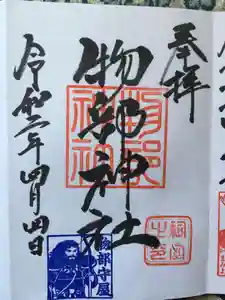 奉拝
物部神社
令和二年四月四日
物部神社
物部守屋